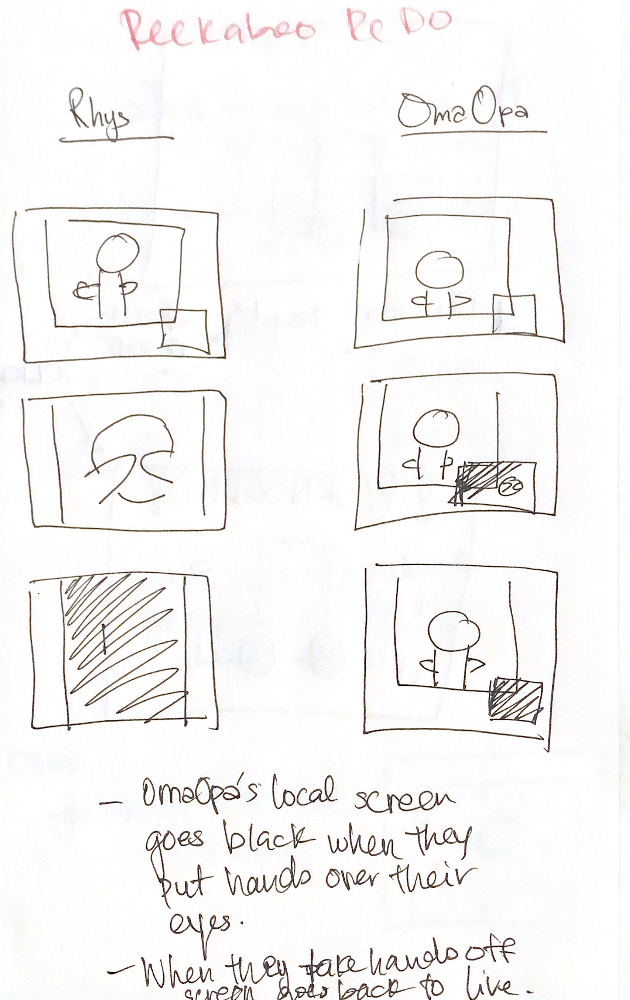 Peekaboo ReDO
Rhys
OmaOpa
- OmaOpa's local screen
goes black when they
put hands over their
eyes.
- When they take hands off
screen goes back to live.